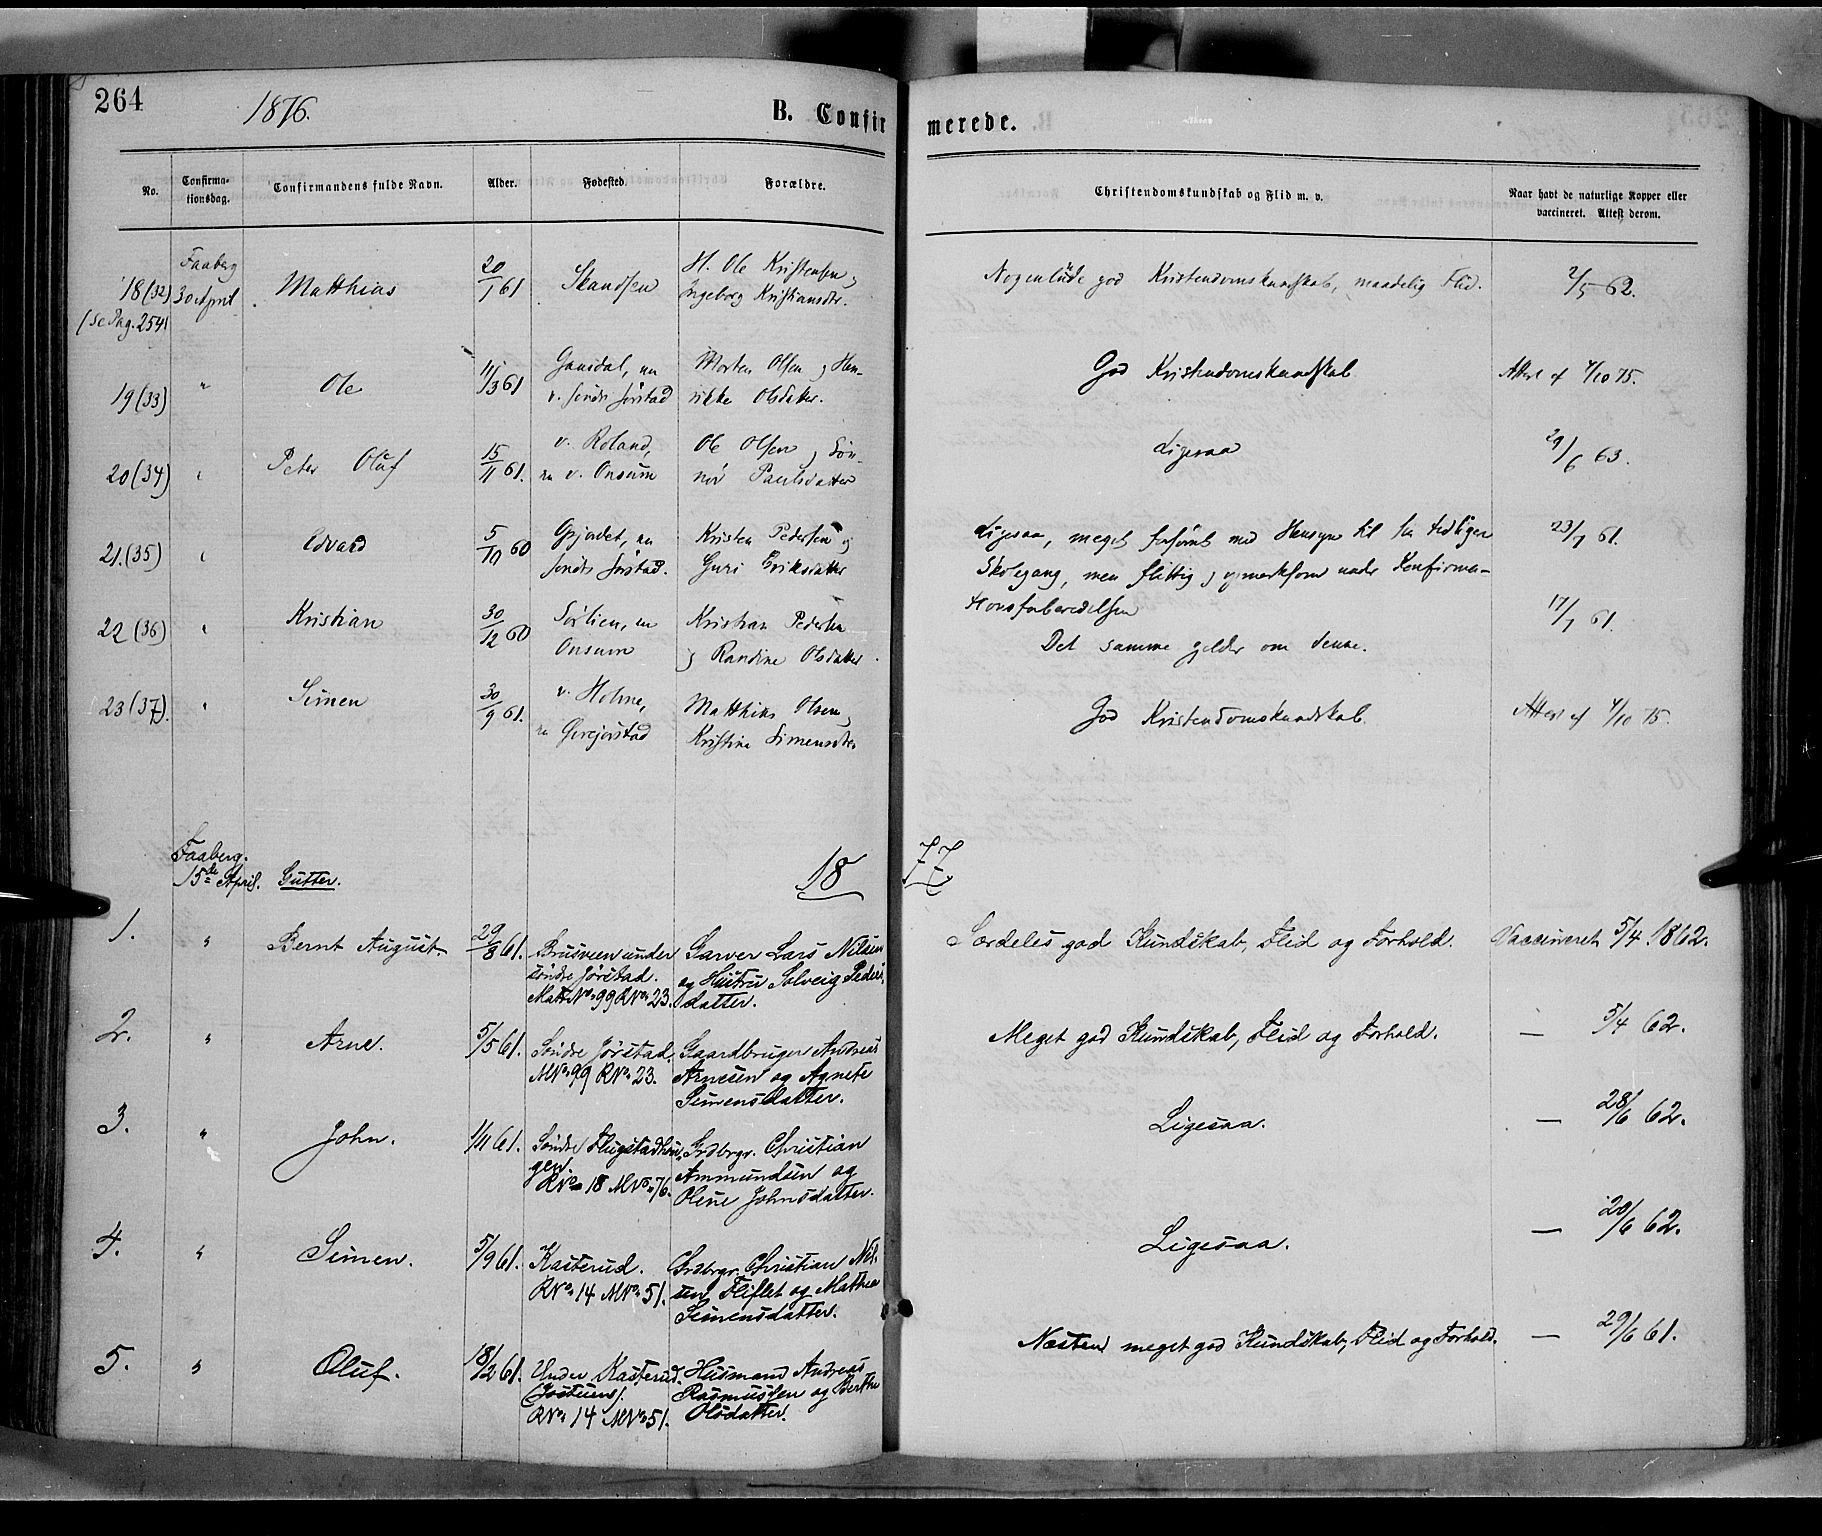 264
1876.
B. Confirmerede.
No.
Confirmationsdag.
Confirmandens fulde Navn.
Alder.
Fødested.
Forældre.
Christendomskundskab og Flid m. v.
Naar havt de naturlige Kopper eller vaccineret. Attest derom.
18 (32) Faaberg 30 April Matthias 20/1 61 Skandsen H. Ole Kristensen og Nogenlunde god Kristendomskundskab, maadelig Flid. 2/5 62.
(se Pag. 254) Ingeborg Kristiansdtr.
19 (33) " Ole 11/3 61 Morten Olsen og Hen- God Kristendomskundskab Attest af 4/10 75.
v. søndre Jørstad rikke Olsdatter.
20 (34) " Peter Oluf 15/11 61. v. Roland, Ole Olsen og Søn- Ligesaa 29/6 63.
nu v. Onsum nøv Paulsdatter
21. (35) " Edvard 5/10 60 nu Kristen Pedersen og Ligesaa, meget forsømt med Hensyn til sin tidligere 23/7 61.
søndre Jørstad. Guri Eriksdatter Skolegang, men flittig og opmerksom under Konfirma-
tionsforberedelsen
22 (36) " Kristian 30/12 60 Sørlien, nu Kristian Pedersen 17/7 61.
Onsum og Randine Olsdatter. Det samme gjelder om denne.
23 (37). " Simen 30/9 61. v. Holme, Matthias Olsen og God Kristendomskundskab. Attest af 4/10 75.
nu Kristine Simensdtr.
Faaberg.
15de April. Gutter. 1877
1. " Bernt August. 29/8 61. Brusveen under Garver Lars Nilsen Særdeles god Kundskab, Flid og Forhold. Vaccineret 5/4 1862.
søndre Jørstad. og Hustru Solveig Peders-
Matr No. 99 R No. 23. datter.
2. " Arne. 5/5 61. Søndre Jørstad. Gaardbruger Andreas Meget god Kundskab, Flid og Forhold. — 5/4 62.
M No. 99 R No. 23. Arnesen og Agnete
Simensdatter.
3. " John. 1/11 61. Søndre Flugstad Grdbrgr. Christian Ligesaa. — 28/6 62.
gen. Ammundsen og
R No. 18 M No. 76. Olene Johnsdatter.
4. " Simen. 5/9 61. Kasterud. Grdbrgr. Christian Nil- Ligesaa. — 20/6 62.
R No. 14 M No. 51. sen Fliflet og Mathea
Simensdatter.
5. " Oluf. 18/2 61. Under Kasterud. Husmand Andreas Næsten meget god Kundskab, Flid og Forhold. — 29/6 61.
Rasmussen og Berthe
R No. 14 M No. 51. Olsdatter.